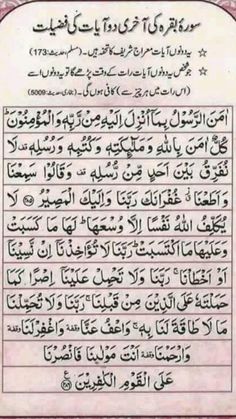 سورۂ بقرہ کی آخری دو آیات کی فضیلت
یہ دونوں آیات معراج شریف کا تحفہ ہیں۔ (مسلم، حدیث: 173)
جو شخص یہ دونوں آیات رات کے وقت پڑھے گا تو یہ دونوں اسے
(اس رات میں ہر چیز سے) کافی ہوں گی۔ (بخاری، حدیث: 5009)
اٰمَنَ الرَّسُوۡلُ بِمَاۤ اُنۡزِلَ اِلَيۡهِ مِنۡ رَّبِّهٖ وَالۡمُؤۡمِنُوۡنَ ؕ
كُلٌّ اٰمَنَ بِاللّٰهِ وَمَلٰٓئِكَتِهٖ وَكُتُبِهٖ وَرُسُلِهٖ لَا
نُفَرِّقُ بَيۡنَ اَحَدٍ مِّنۡ رُّسُلِهٖ وَقَالُوۡا سَمِعۡنَا
وَاَطَعۡنَا غُفۡرَانَكَ رَبَّنَا وَاِلَيۡكَ الۡمَصِيۡرُ ﴿۲۸۵﴾ لَا
يُكَلِّفُ اللّٰهُ نَفۡسًا اِلَّا وُسۡعَهَا ؕ لَهَا مَا كَسَبَتۡ
وَعَلَيۡهَا مَا اكۡتَسَبَتۡ ؕ رَبَّنَا لَا تُؤَاخِذۡنَاۤ اِنۡ نَّسِيۡنَاۤ
اَوۡ اَخۡطَاۡنَا ۚ رَبَّنَا وَلَا تَحۡمِلۡ عَلَيۡنَاۤ اِصۡرًا كَمَا
حَمَلۡتَهٗ عَلَى الَّذِيۡنَ مِنۡ قَبۡلِنَا ۚ رَبَّنَا وَلَا تُحَمِّلۡنَا
مَا لَا طَاقَةَ لَنَا بِهٖ ۚ وَاعۡفُ عَنَّا وقفة وَاغۡفِرۡ لَنَا وقفة
وَارۡحَمۡنَا وقفة اَنۡتَ مَوۡلٰىنَا فَانۡصُرۡنَا
عَلَى الۡقَوۡمِ الۡكٰفِرِيۡنَ ﴿۲۸۶﴾